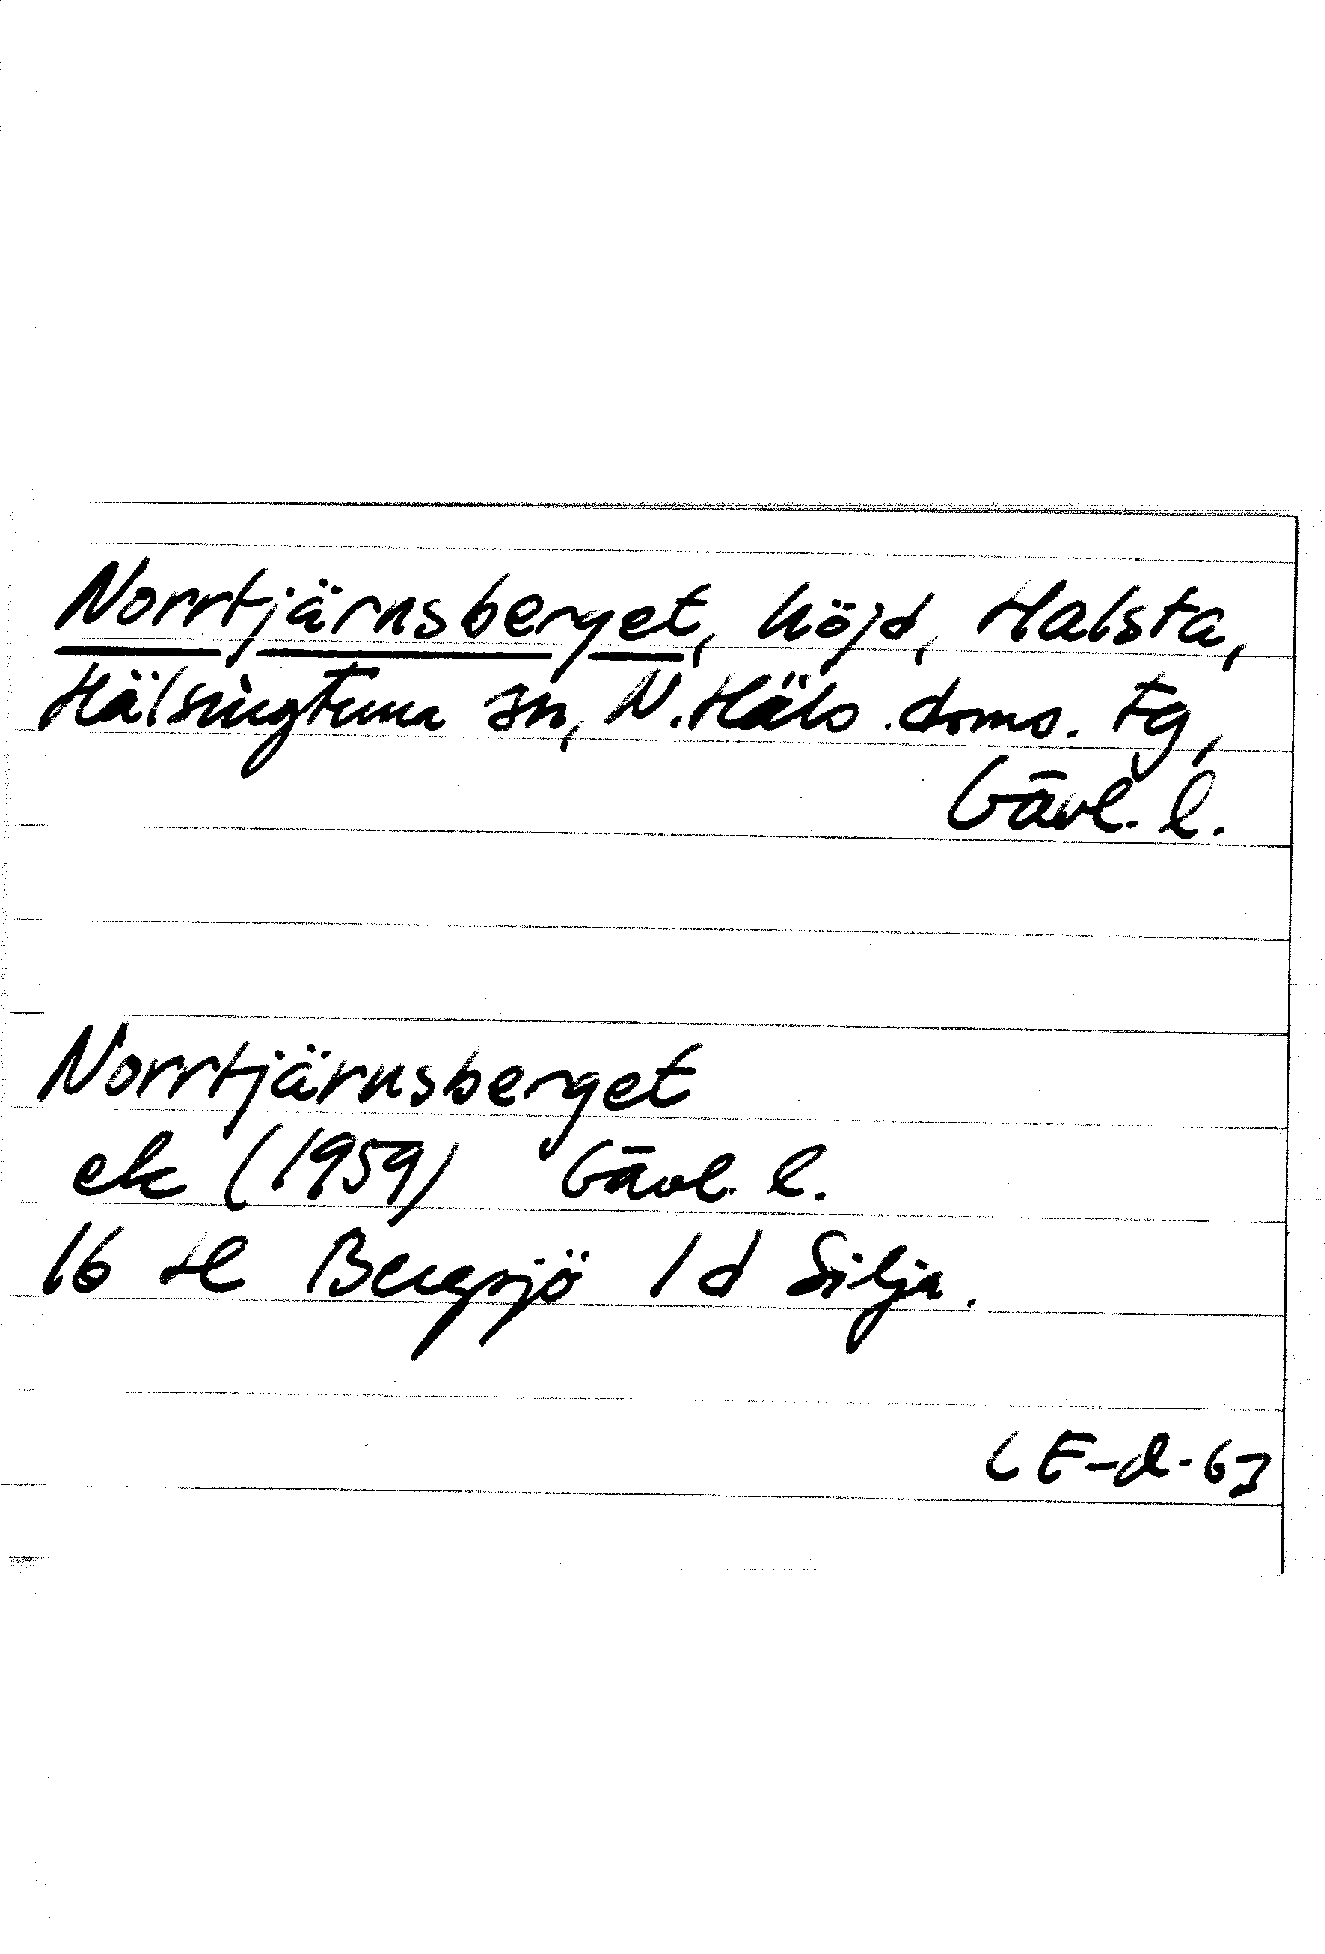 Norrtjärnsberget, höjd, Halsta,
Hälsingtuna sn, N. Häls. doms. tg,
Gävl. l.
Norrtjärnsberget
ek (1959) Gävl. l.
16 H Bergsjö 1 d Silja.